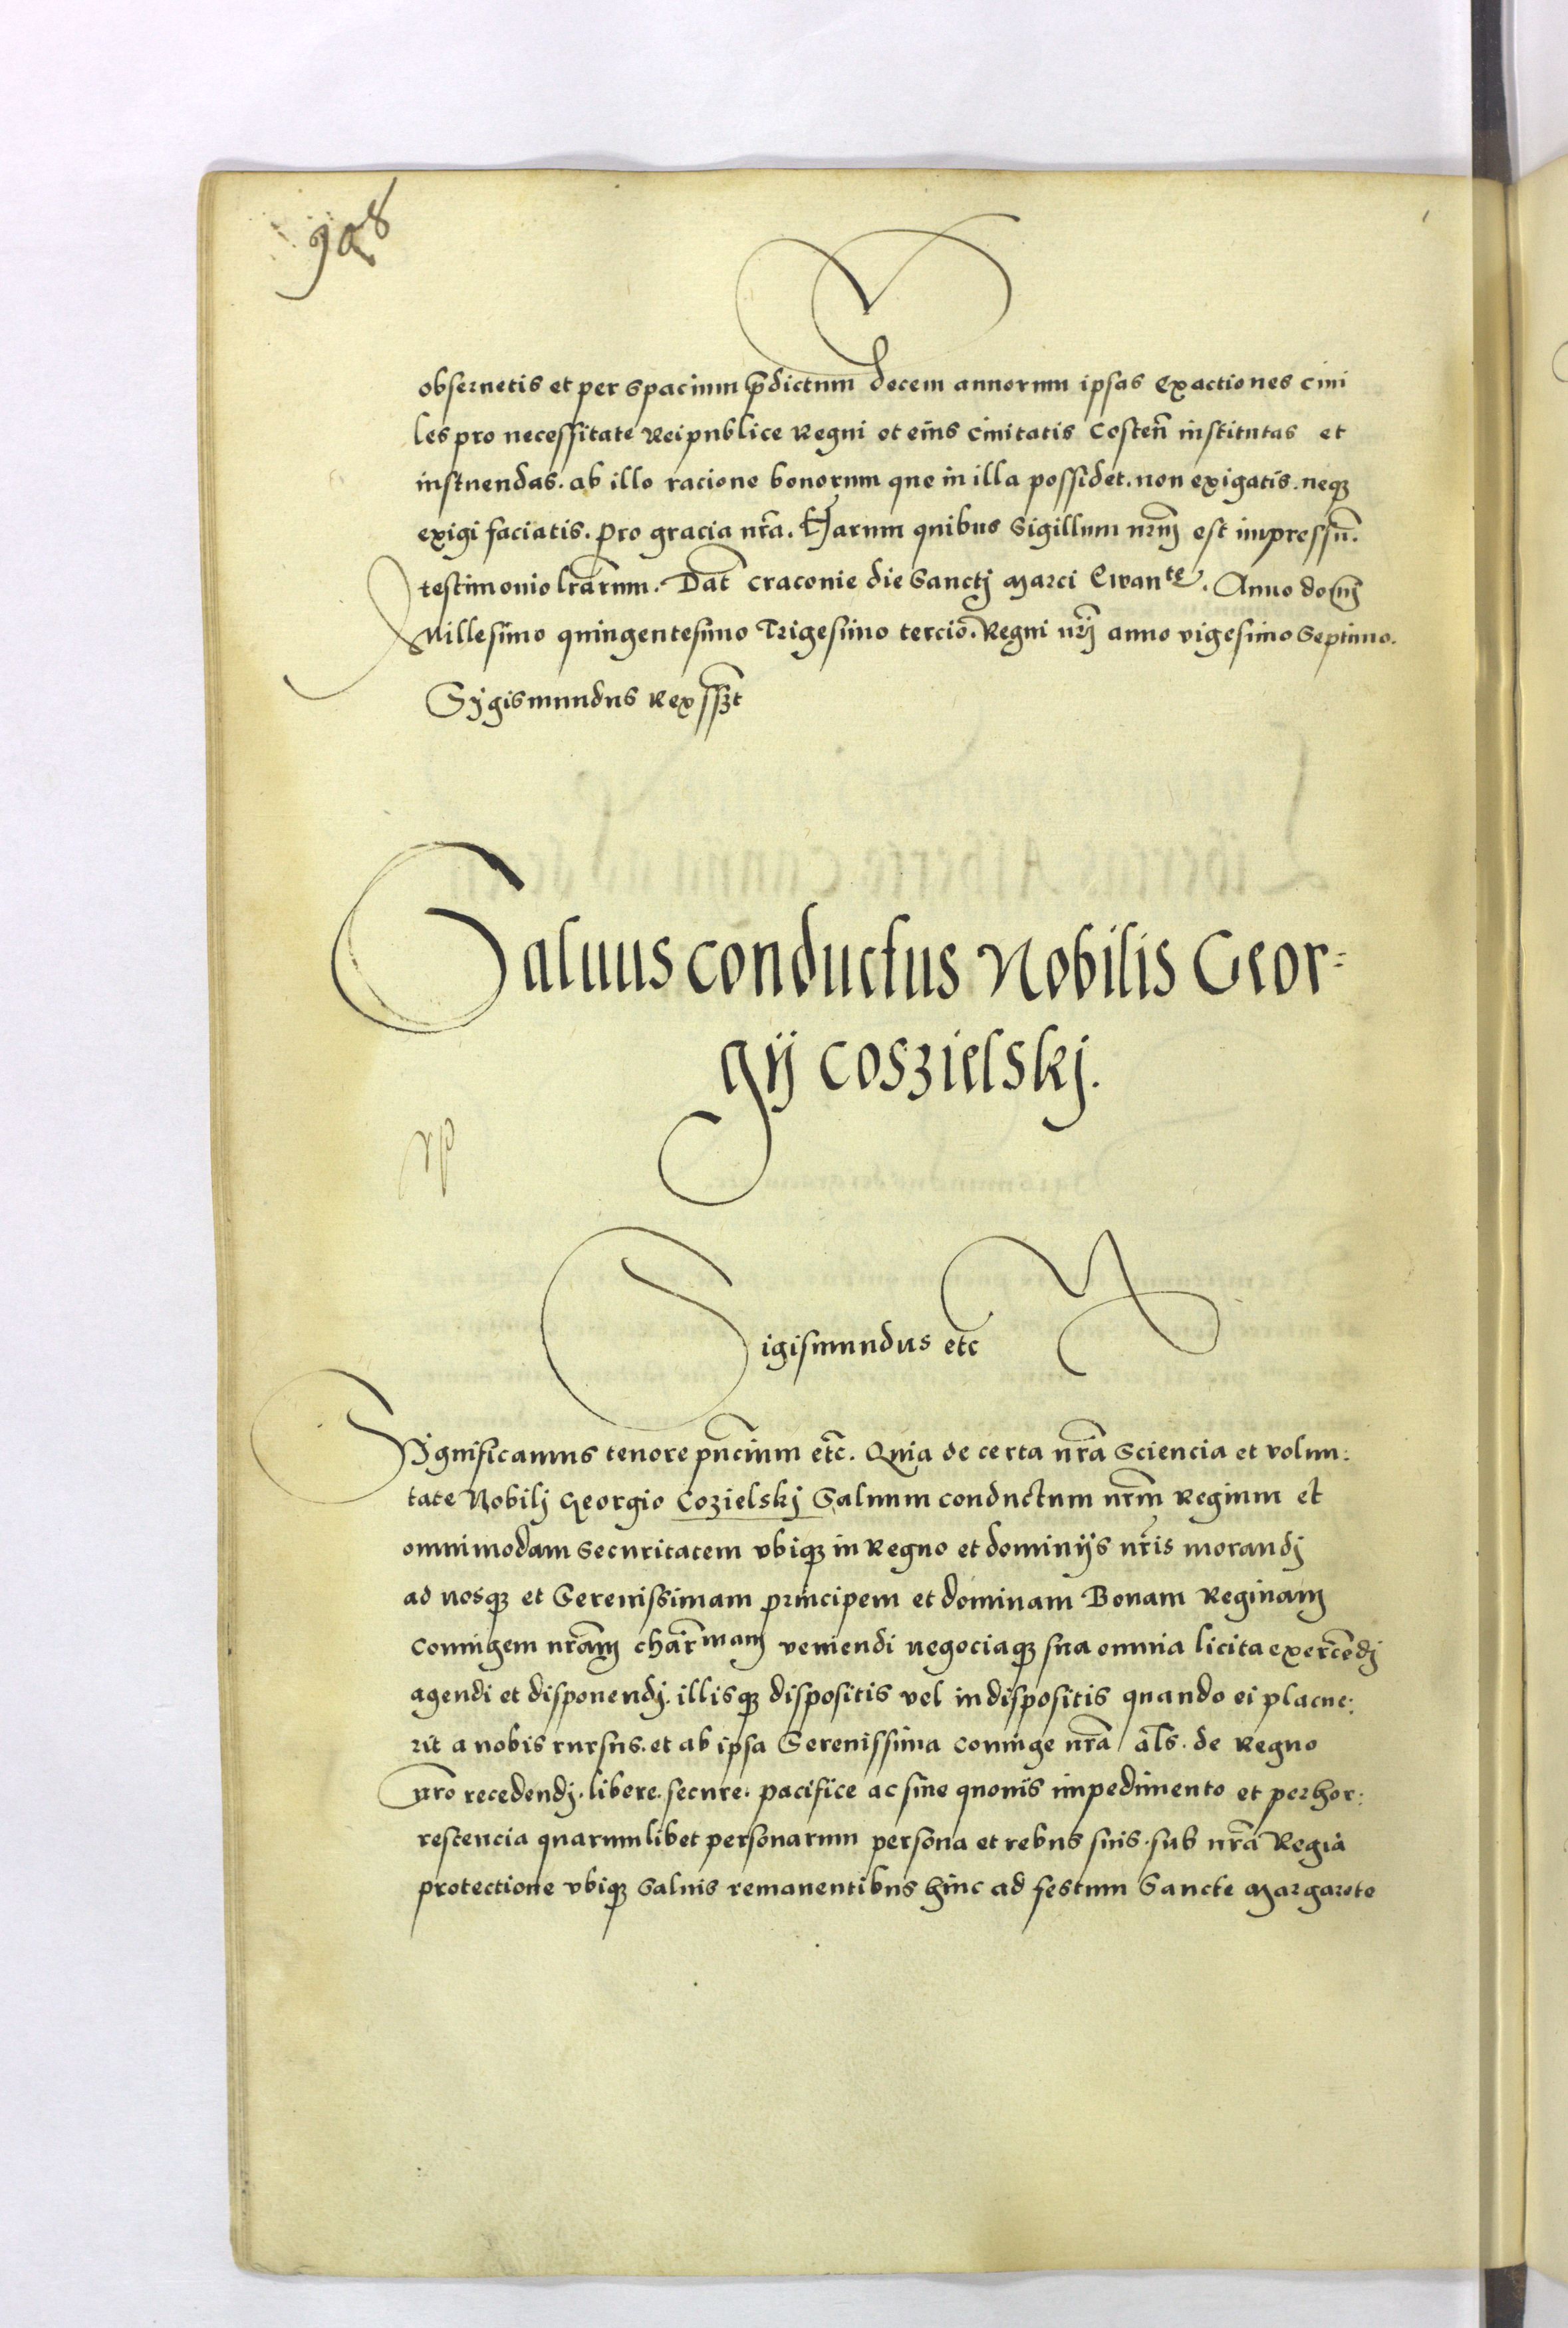 908
obseruetis et per spacium p̄dictum decem annorum ipsas exactiones ciui
les pro necessitate Reipublice Regni et eius ciuitatis Costen̄ institutas et
instuendas. ab illo racione bonorum que in illa possidet. non exigatis. neqȝ
exigi faciatis. pro gracia nr̄a. Harum quibus Sigillum nrm̄ est impressū.
testimonio lrārum. Dat̄ Craconie die Sanctj Marci Ewan^te. Anno domj
Millesimo quingentesimo Trigesimo tercio. Regni nrj̄ anno vigesimo Septimo.
Sygismundus Rex ssȝt
Saluus conductus Nobilis Geor=
gij Coszielskj.
rp
Sigismundus etc
Significamus tenore pn̄cium etc̄. Quia de certa nr̄a Sciencia et volun:
tate Nobilj Georgio Cozielskj Saluum conductum nrm̄ Regium et
omnimodam Securitatem vbiqȝ in Regno et dominijs nr̄is morandj
ad nosqȝ et Serenissimam principem et dominam Bonam Reginam
coniugem nrām char̄^mam veniendi negociaqȝ sua omnia licita exercēdj
agendi et disponendj. illisqȝ dispositis vel indispositis quando ei placue:
rit a nobis rursus. et ab ipsa Serenissima coniuge nrā / al̄s. de Regno
nr̄o recedendj. libere. secure. pacifice ac sine quouis impedimento et perhor:
rescencia quarumlibet personarum persona et rebus suis. sub nrā Regia
protectione vbiqȝ Saluis remanentibus hinc ad festum Sancte Margarete